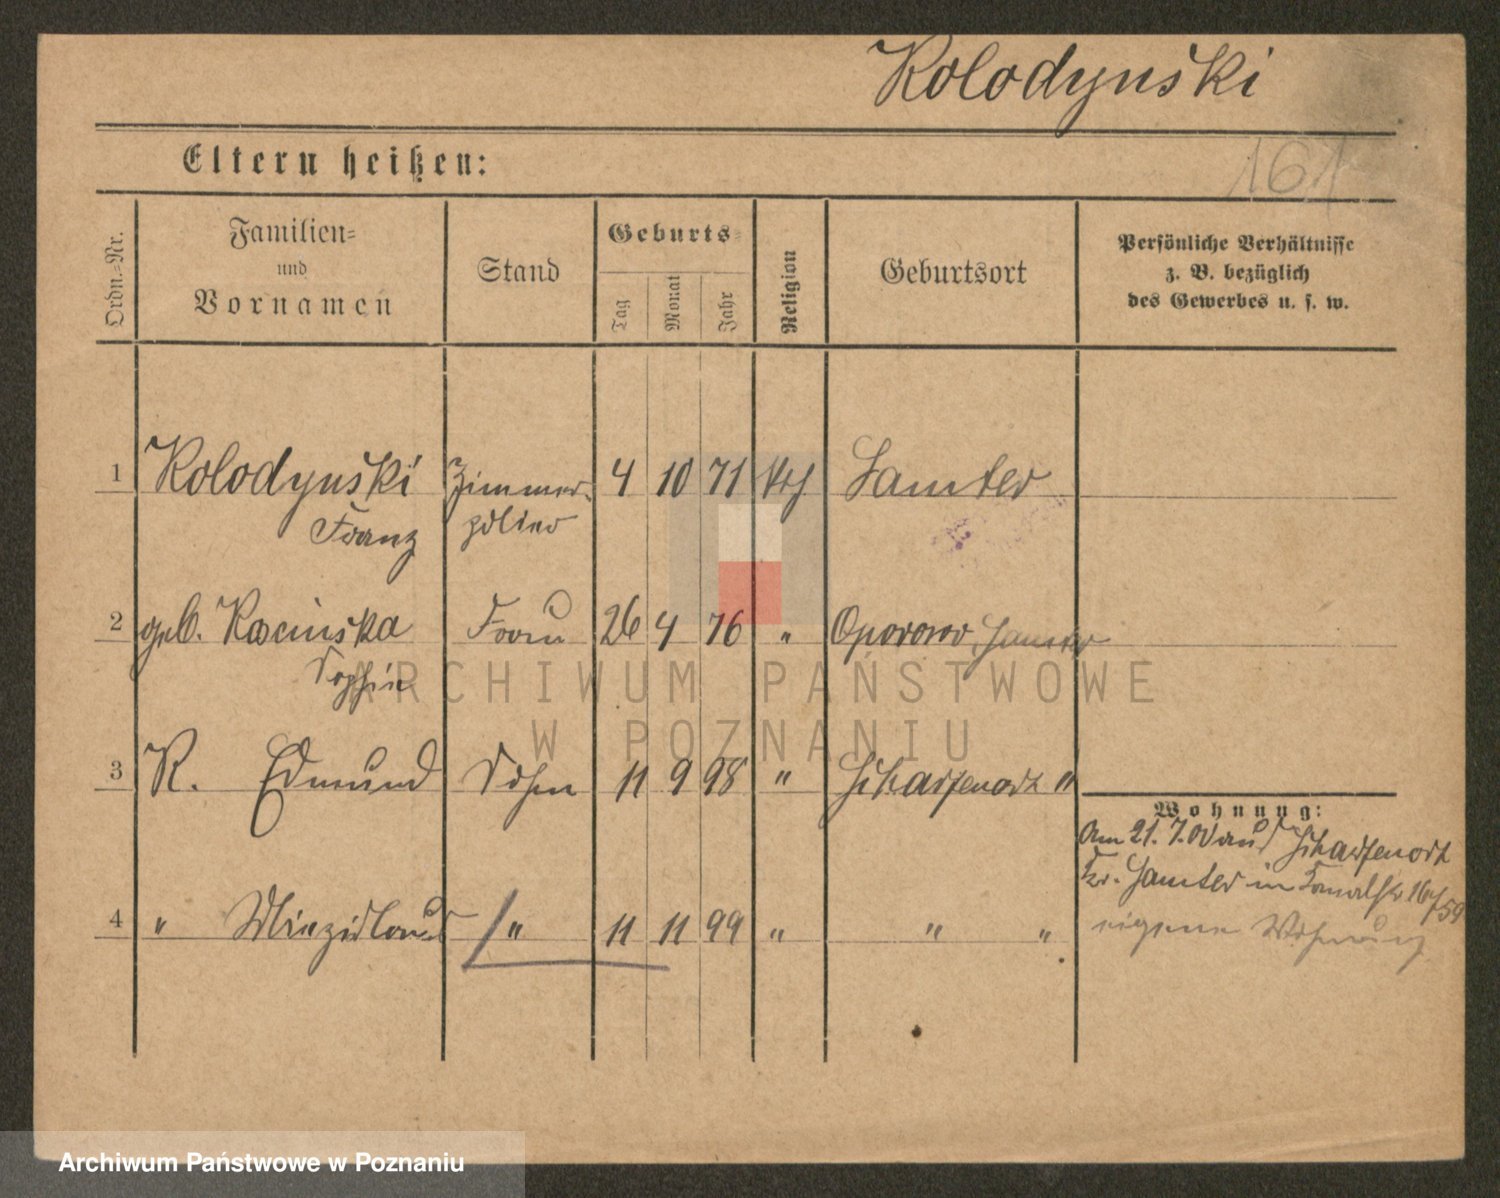 Kolodynski
161
Eltern heißen:
Ordn.-Nr.
Familien-
und
Vornamen
Stand
Geburts-
Tag
Monat
Jahr
Religion
Geburtsort
Persönliche Verhältnisse
z. B. bezüglich
des Gewerbes u. s. w.
1 Kolodynski Zimmer- 4 10 71 kth Samter
Franz polier
2 geb. Kacinska Frau 26 4 76 " Oporowo, Samter
Sophie
3 K. Edmund Sohn 11 9 98 " Scharfenort "
Wohnung:
Am 21. 7. 00 aus Scharfenort
Kr. Samter in Kanalstr 16/59
eigene Wohnung
4 " Miezislaus " 11 11 99 " " "
ARCHIWUM PAŃSTWOWE
W POZNANIU
Archiwum Państwowe w Poznaniu